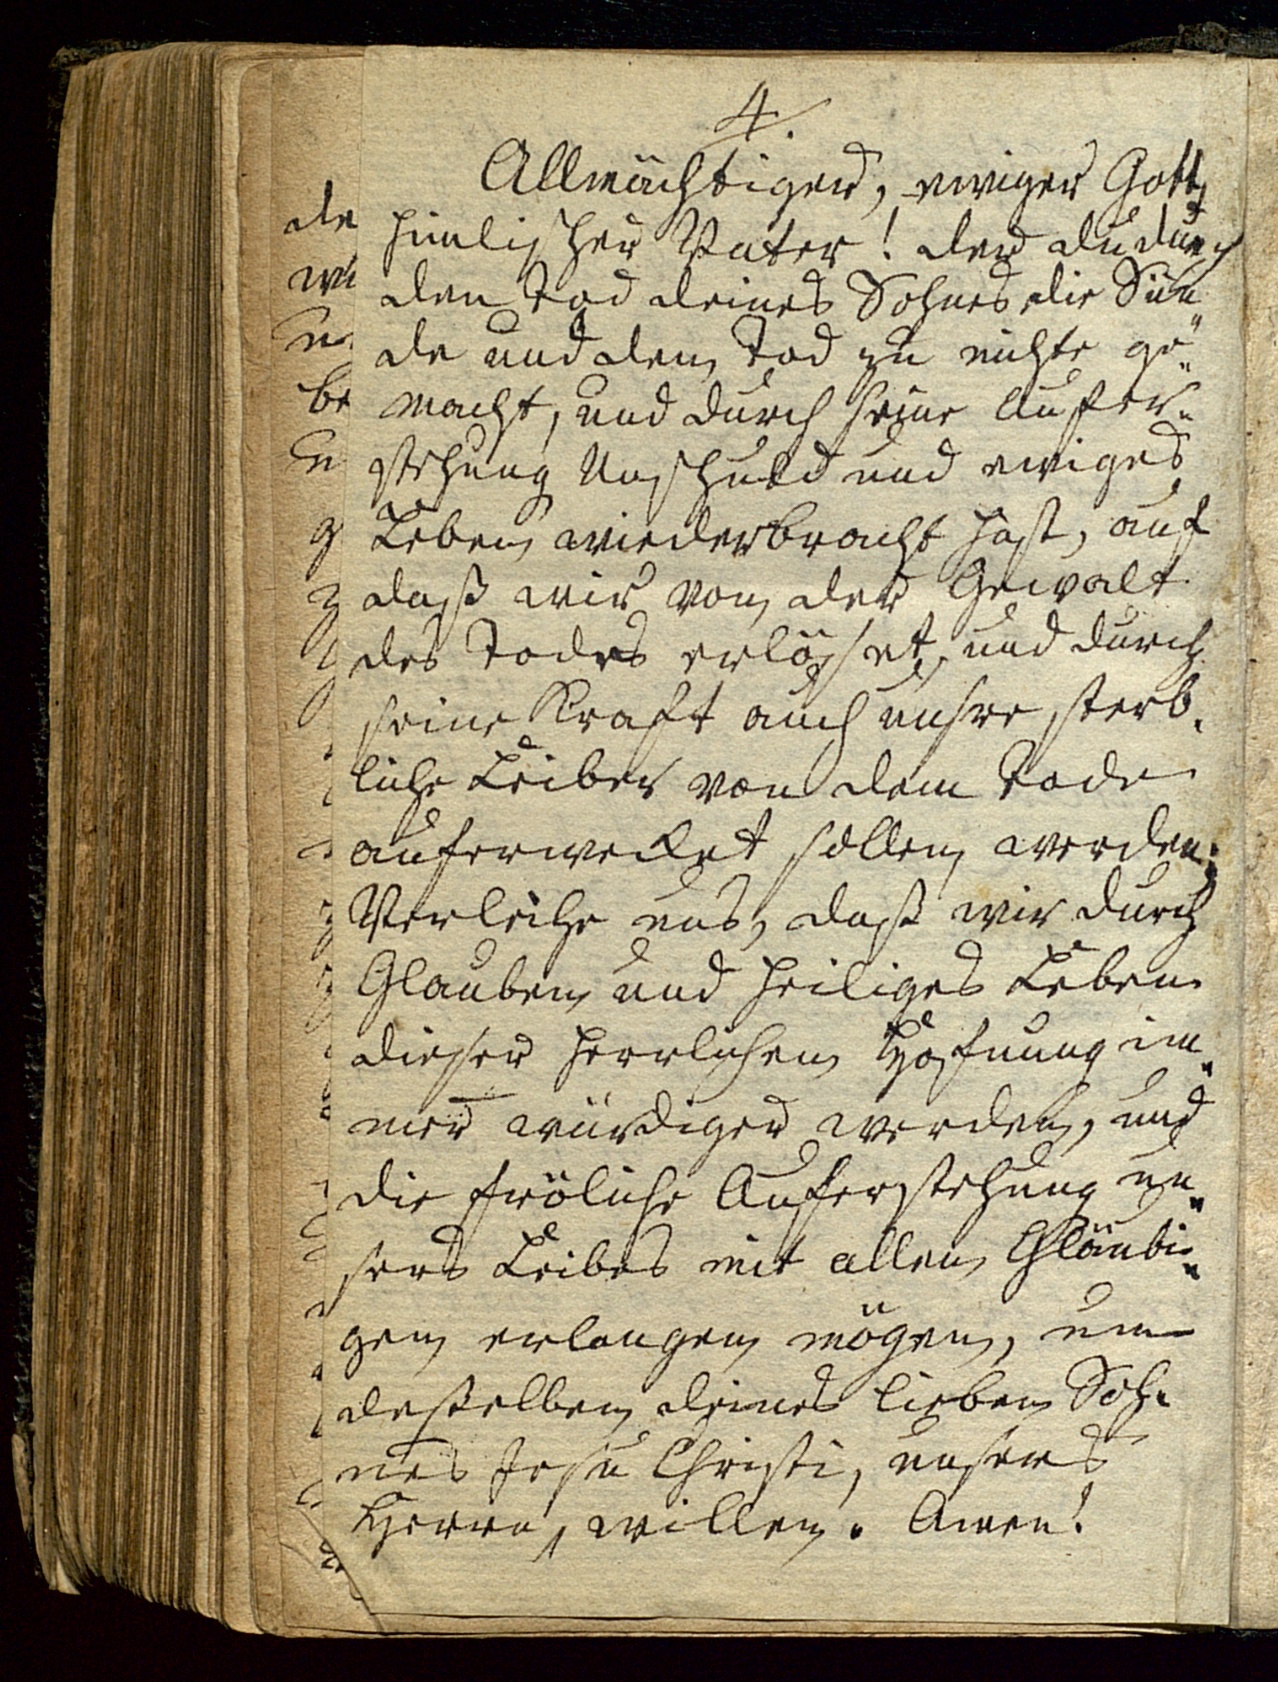 4.
Allmächtiger, ewiger Gott,
himlischer Vater! der du durch
den Tod deines Sohnes die Sün-
de und den Tod zu nichte ge-
macht, und durch seine Aufer-
stehung Unschuld und ewiges
Leben wiederbracht hast, auf
daß wir von der Gewalt
des Todes erlöset, und durch
seine Kraft auch unsre sterb-
liche Leiber von dem Tode
auferwecket sollen werden;
Verleihe uns, daß wir durch
Glauben und heiliges Leben
dieser herrlichen Hofnung im-
mer würdiger werden, und
die fröliche Auferstehung un-
sers Leibes mit allen Gläubi-
gen erlangen mögen, um
desselben deines lieben Soh-
nes Jesu Christi, unsers
Herrn, willen. Amen!